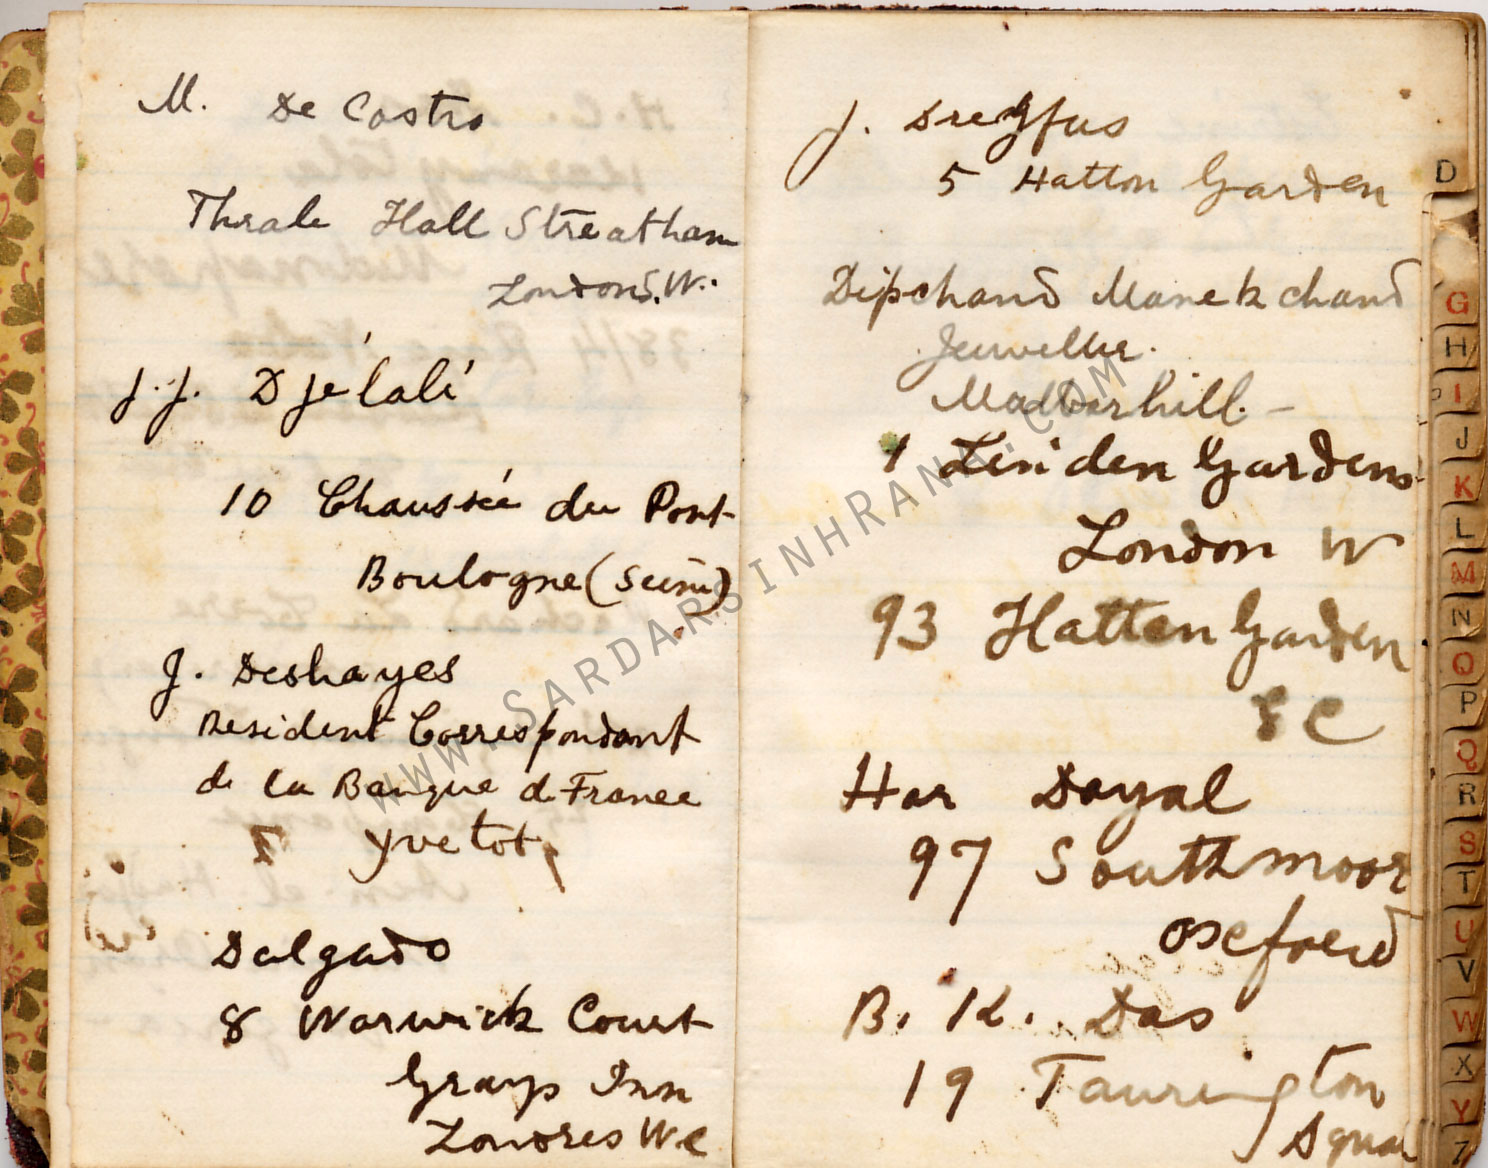 M. De Castro
Thrale Hall Streatham
London S.W.
J. J. Djélalé
10 Chaussée du Pont
Boulogne (Seine)
J. Deshayes
Resident Correspondant
de la Banque de France
Yvetot
Delgado
8 Warwick Court
Grays Inn
Londres W.C
J. Dreyfus
5 Hatton Garden
Dipchand Manekchand
Jeweller.
1 Linden Gardens
London W
93 Hatten Garden
E C
Har Dayal
97 Southmoor
Oxford
B. K. Das
19 Taurington
Squar
D
G
H
I
J
K
L
M
N
O
P
Q
R
S
T
U
V
W
X
Y
Z
WWW.SARDARSINHRANA.COM